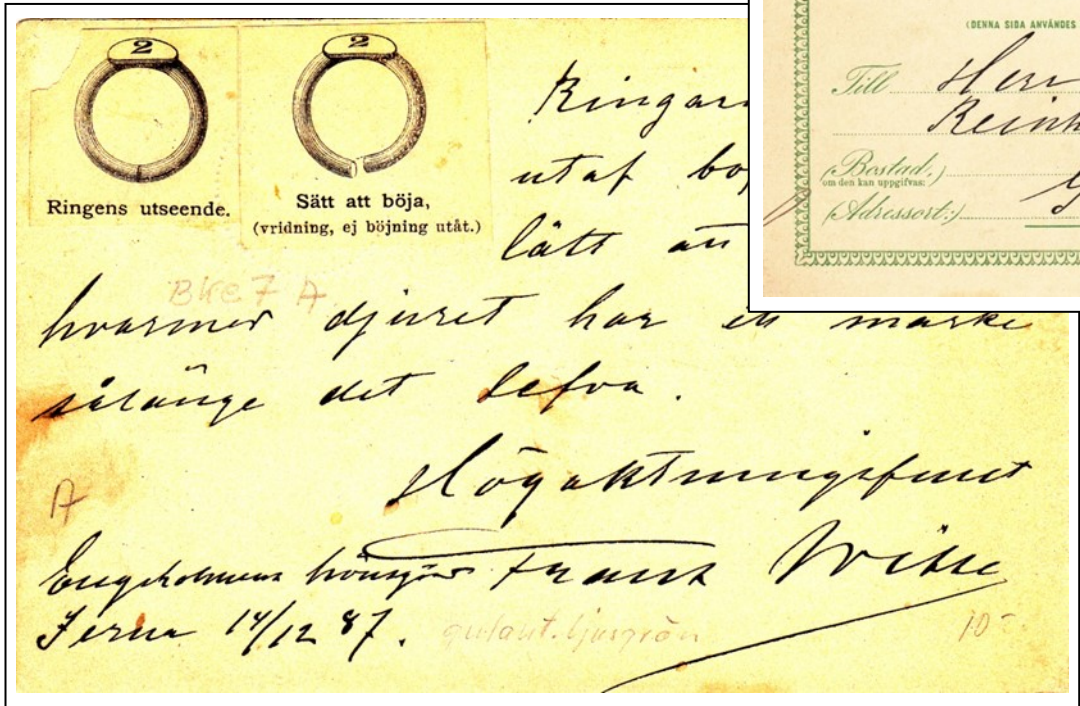 2
2
Ringens utseende.
Sätt att böja,
(vridning, ej böjning utåt.)
utaf
lätt att
Bke7 A
hvarmed djuret har ett märke
sålänge det lefva.
Högaktningsfullt
A
hönsgård Frans
Jerna 14/12 87.
gulakt. ljusgrön
10-
(DENNA SIDA ANVÄNDES
Till Herr
(Bostad,)
om den kan uppgifvas:
(Adressort:)